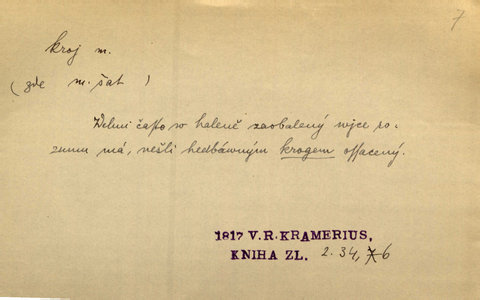 7
kroj m.
(zde m. šat )
Welmi často w haleně zaobalený wjce ro-
zumu má, nežli hedbáwným krogem ossacený.
1817 V.R. KRAMERIUS,
KNIHA ZL. 2. 34, 76